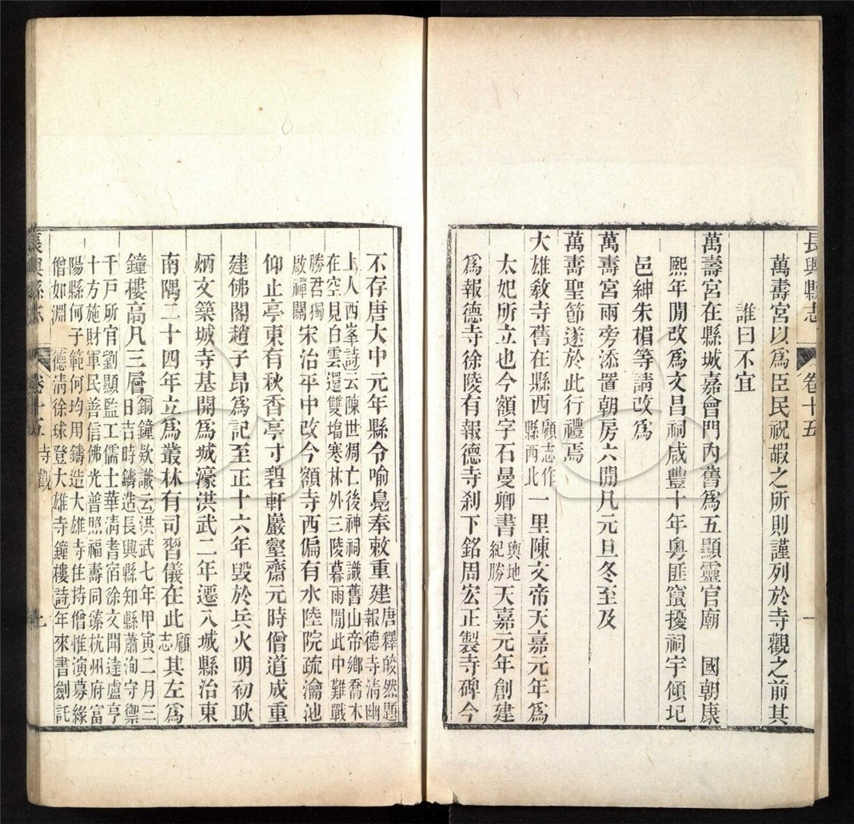 萬壽宮以爲臣民祝嘏之所則謹列於寺觀之前其
誰曰不宜
萬壽宮在縣城嘉會門內舊爲五顯靈官廟　國朝康
熙年間改爲文昌祠咸豐十年粵匪竄擾祠宇傾圮
邑紳朱楣等請改爲
萬壽宮兩旁添置朝房六間凡元旦冬至及
萬壽聖節遂於此行禮焉
大雄敎寺舊在縣西顧志作縣西北一里陳文帝天嘉元年爲
太妃所立也今額字石曼卿書輿地紀勝天嘉元年創建
爲報德寺徐陵有報德寺刹下銘周宏正製寺碑今
長興縣志
卷十五
一
不存唐大中元年縣令喻鳧奉敕重建唐釋皎然題報德寺淸幽
上人西峯詩云陳世凋亡後神祠識舊山帝鄉喬木
在空見白雲還雙塔寒林外三陵暮雨間此中難戰
勝君獨啟禪關宋治平中改今額寺西偏有水陸院疏瀹池
仰止亭東有秋香亭寸碧軒巖壑齋元時僧道成重
建佛閣趙子昂爲記至正十六年毀於兵火明初耿
炳文築城寺基開爲城濠洪武二年遷入城縣治東
南隅二十四年立爲叢林有司習儀在此顧志其左爲
鐘樓高凡三層銅鐘欵識云洪武七年甲寅二月三日吉時鑄造長興縣知縣蕭洵守禦
千戸所官劉顯監工儒士華淸耆宿徐文開達盧亨
十方施財軍民善信佛光普照福壽同臻杭州府富
陽縣何子範何均用鑄造大雄寺住持僧惟演募緣
僧如淵　德淸徐球登大雄寺鐘樓詩年來書劍託
長興縣志
卷十五　寺觀